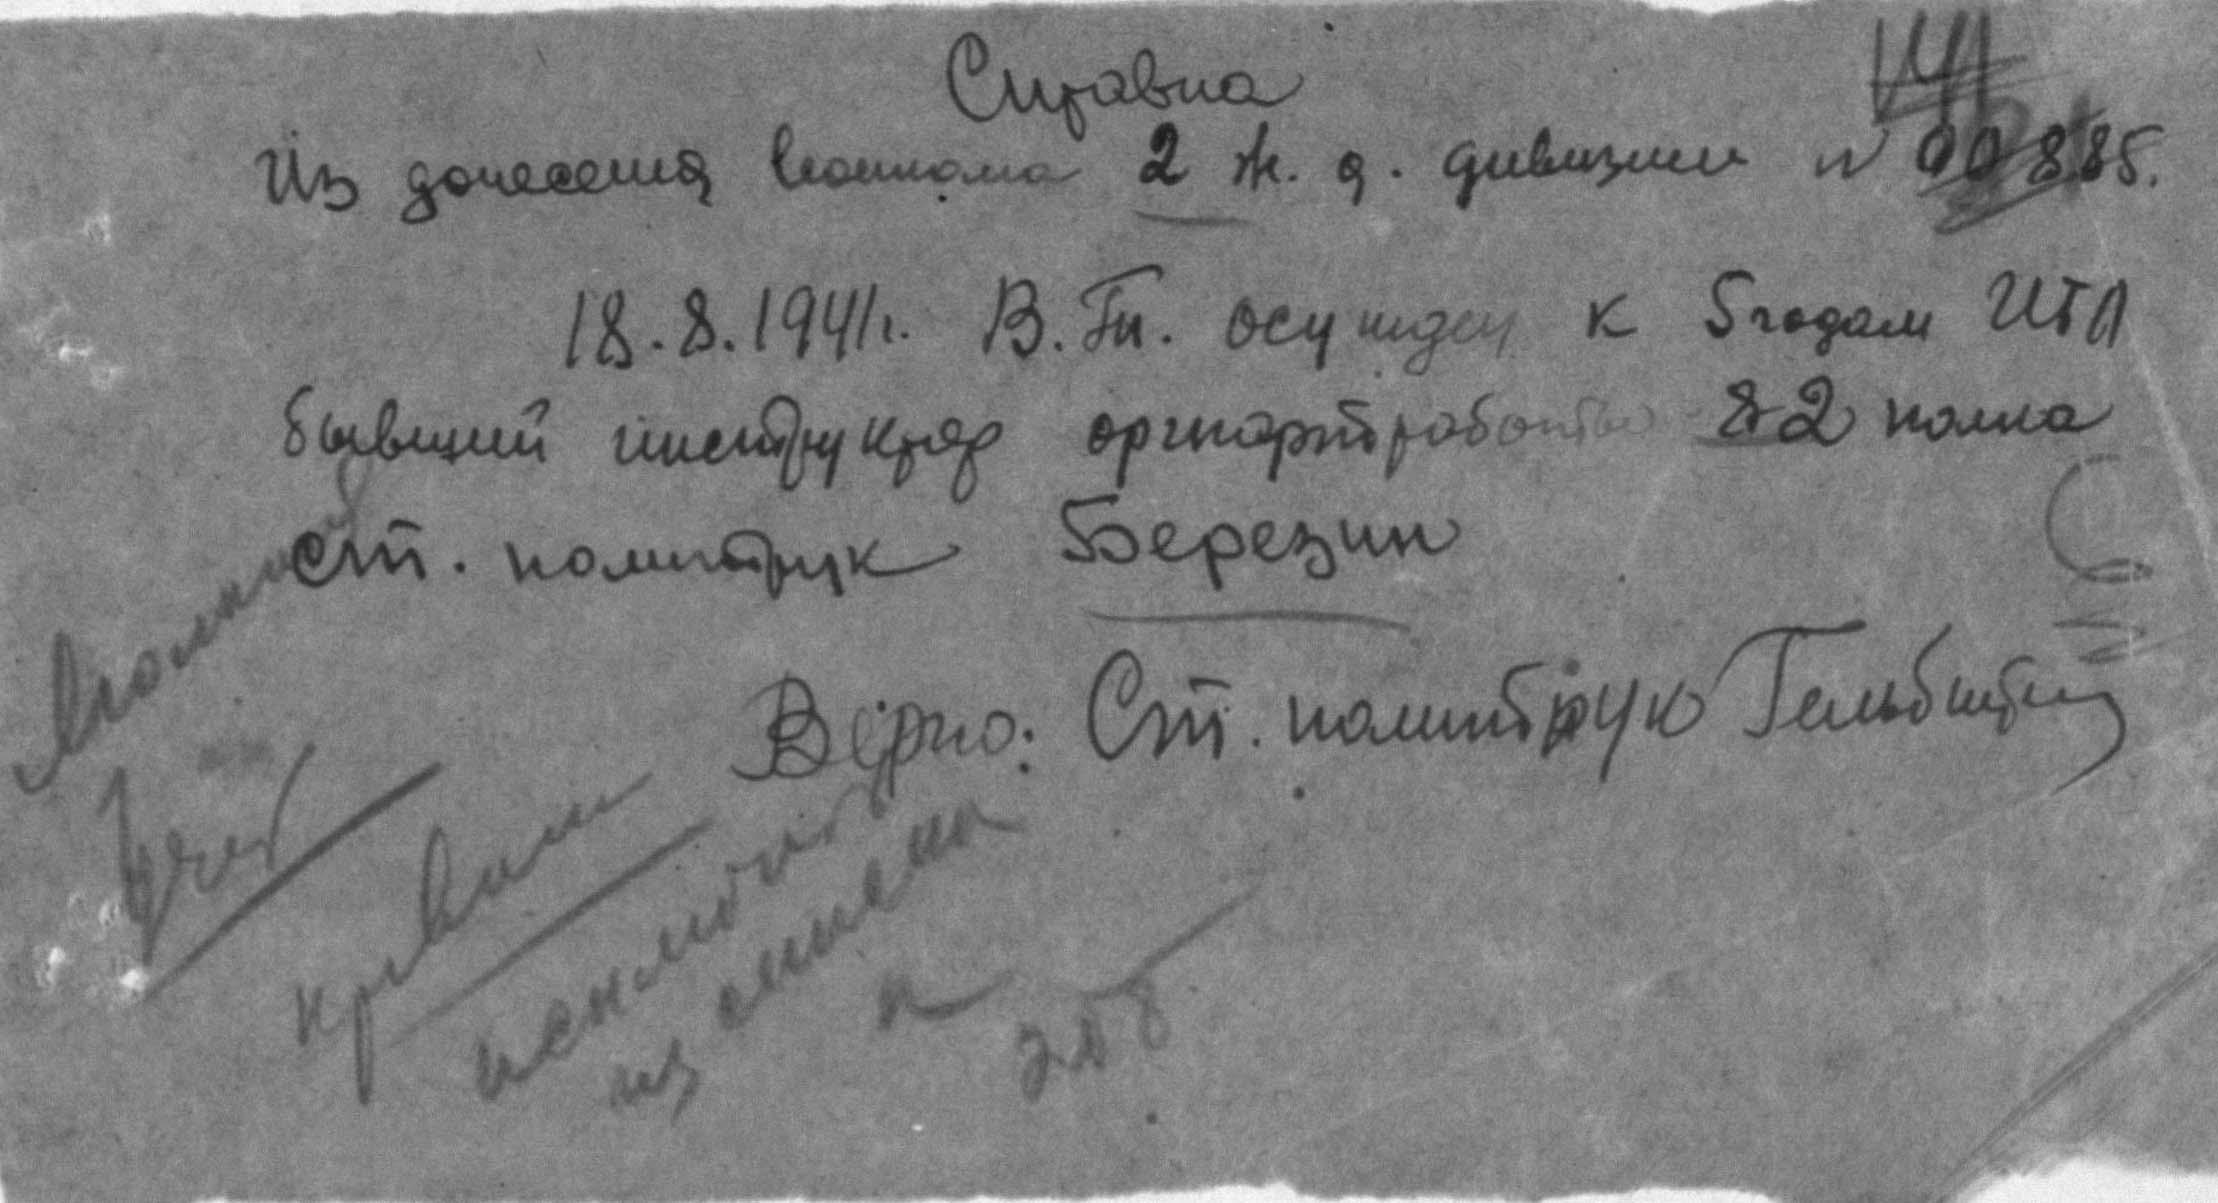 Справка
Из донесения военкома 2 ж. д. дивизии № 00885.
18.8.1941г. В.Тр. осужден к 5 годам ИТЛ
бывший инструктор оргпартработы 82 полка
ст. политрук Березин
Верно: Ст. политрук Гельбштейн
Учет
приказ
исключить
из списка